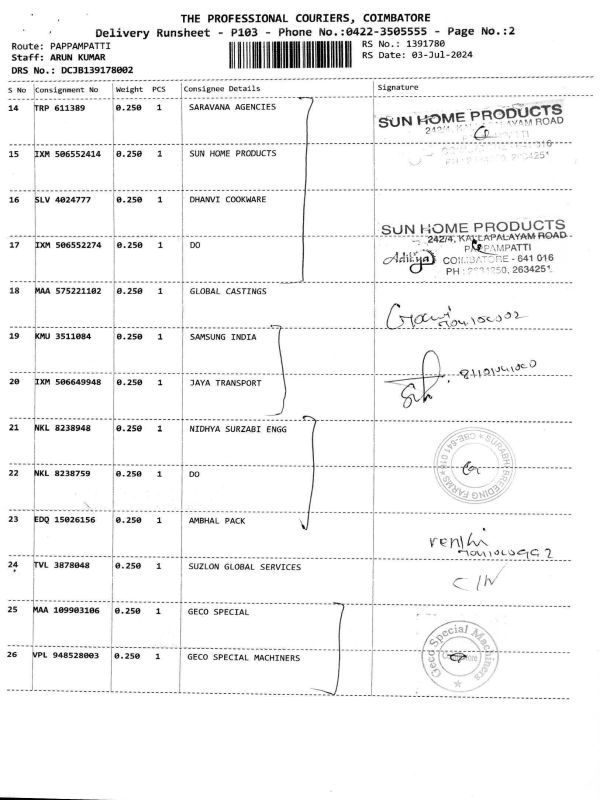 THE PROFESSIONAL COURIERS, COIMBATORE
Delivery Runsheet - P103 - Phone No.:0422-3505555 - Page No.:2
Route: PAPPAMPATTI RS No.: 1391780
Staff: ARUN KUMAR RS Date: 03-Jul-2024
DRS No.: DCJB139178002
S No Consignment No Weight PCS Consignee Details Signature
14 TRP 611389 0.250 1 SARAVANA AGENCIES
SUN HOME PRODUCTS
15 IXM 506552414 0.250 1 SUN HOME PRODUCTS
16 SLV 4024777 0.250 1 DHANVI COOKWARE
SUN HOME PRODUCTS
242/4, KALLAPALAYAM ROAD
17 IXM 506552274 0.250 1 DO
PAPPAMPATTI
Aditya COIMBATORE - 641 016
PH : 2634251
18 MAA 575221102 0.250 1 GLOBAL CASTINGS
19 KMU 3511084 0.250 1 SAMSUNG INDIA
20 IXM 506649948 0.250 1 JAYA TRANSPORT
21 NKL 8238948 0.250 1 NIDHYA SURZABI ENGG
SURABHI BREEDING FARMS * CBE-641 016 *
22 NKL 8238759 0.250 1 DO
23 EDQ 15026156 0.250 1 AMBHAL PACK
24 TVL 3878048 0.250 1 SUZLON GLOBAL SERVICES
25 MAA 109903106 0.250 1 GECO SPECIAL
Geco Special Machiners
26 VPL 948528003 0.250 1 GECO SPECIAL MACHINERS